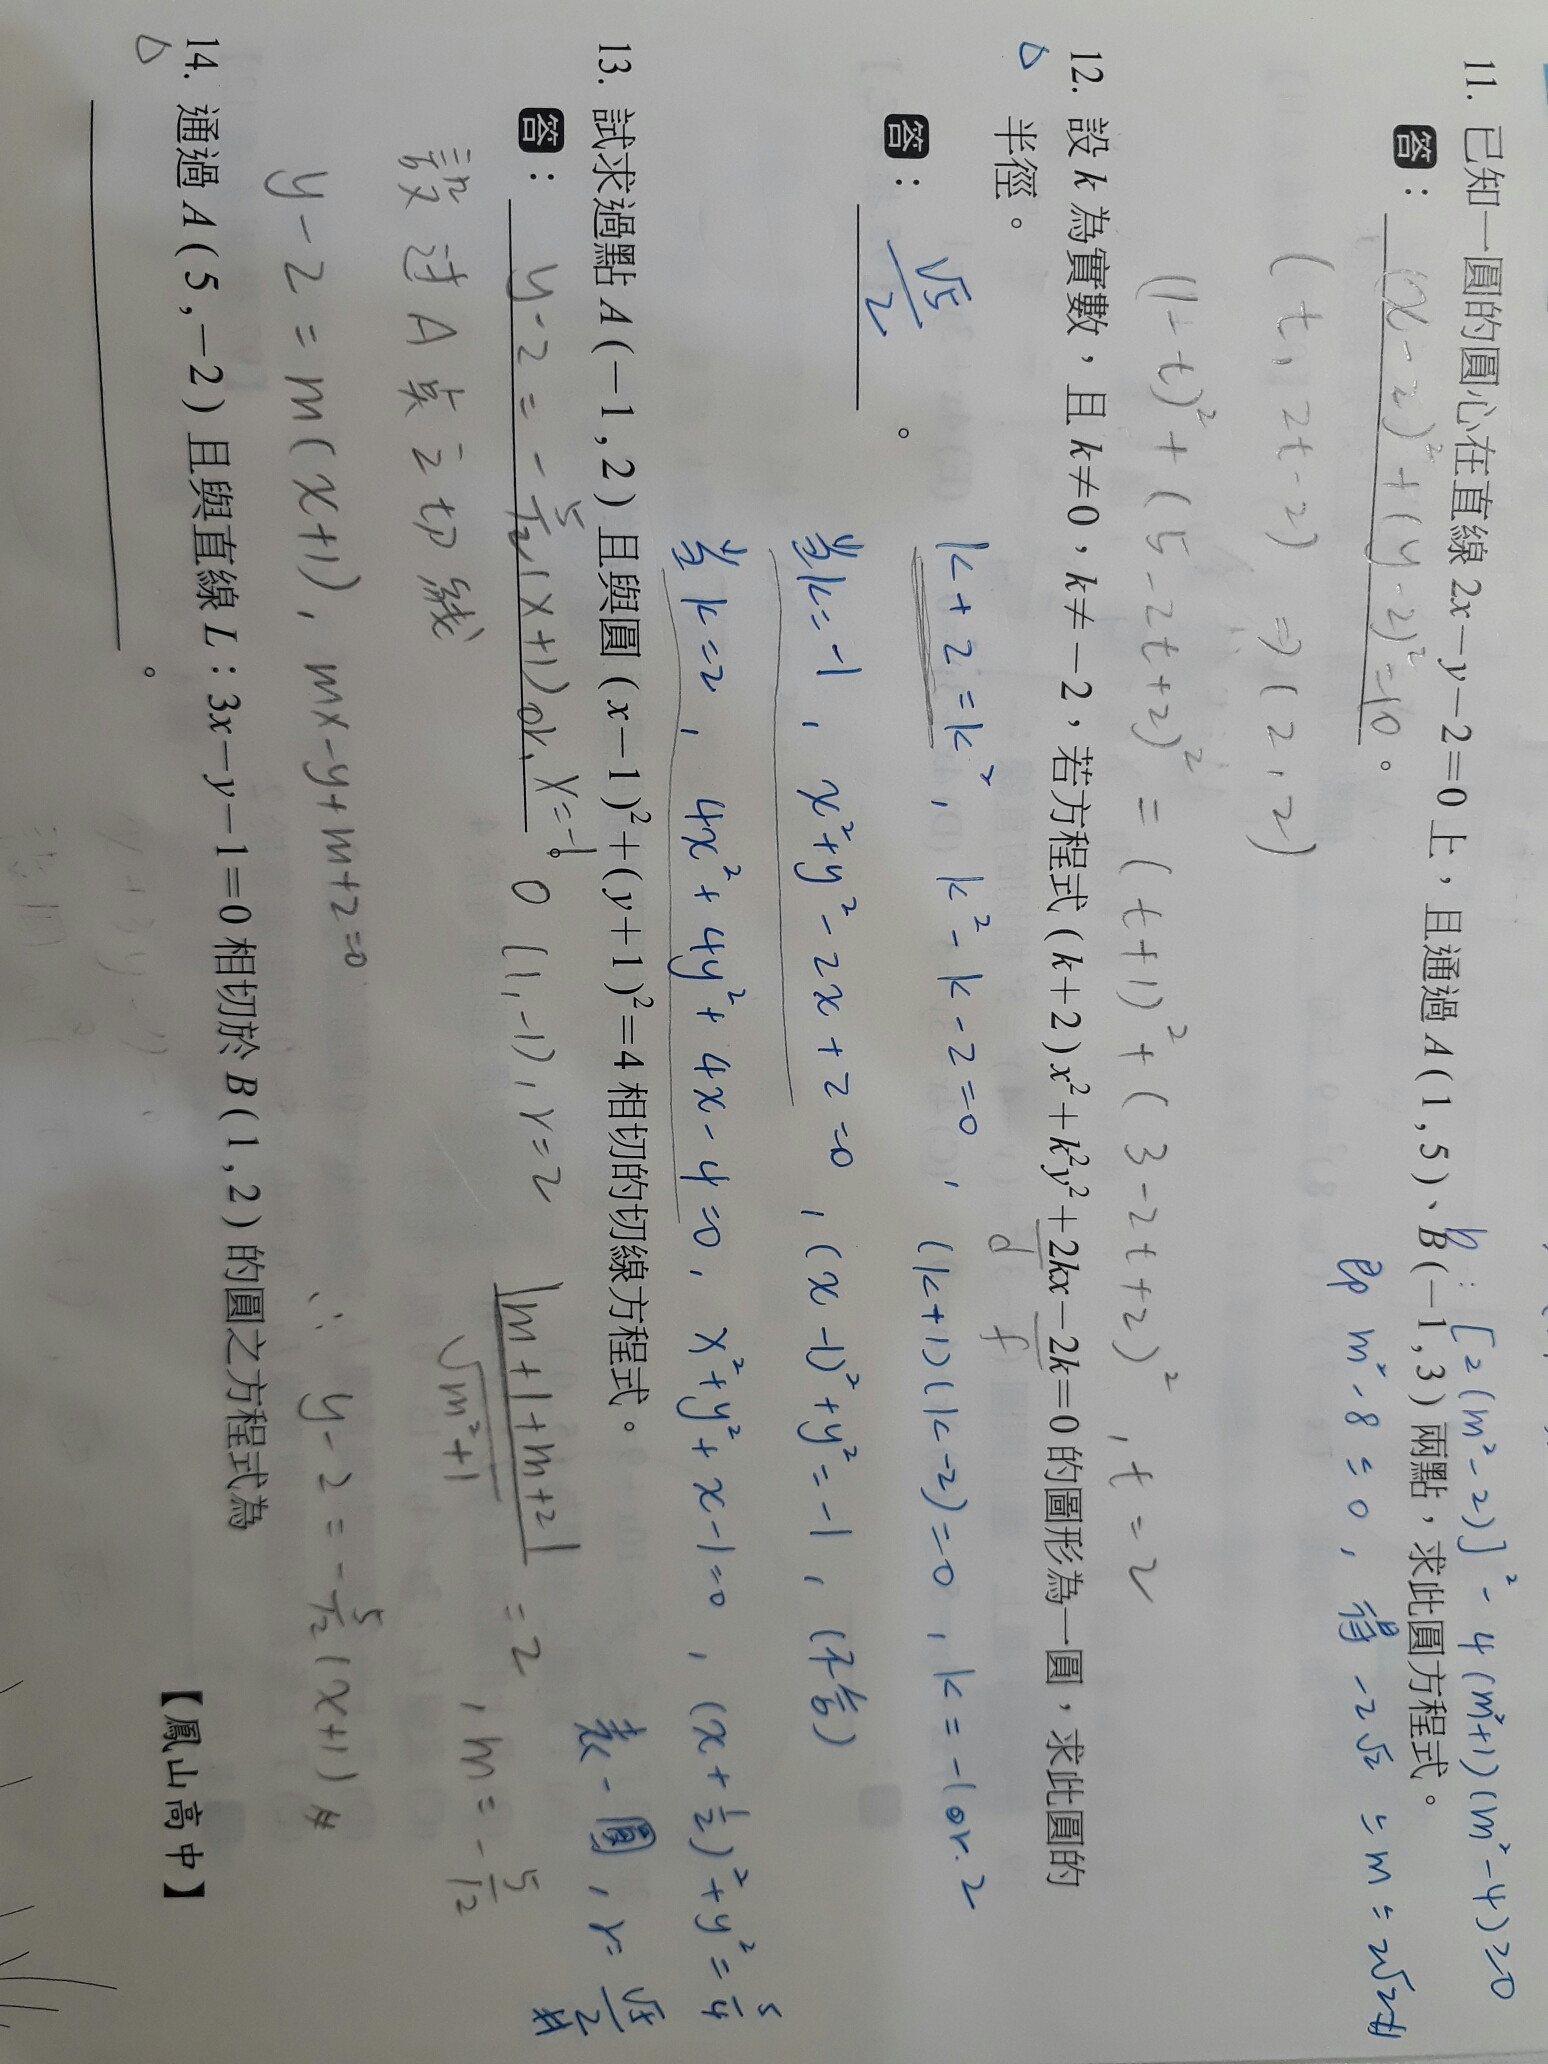 b: [2(m²-2)]² - 4(m²+1)(m²-4)≥0
11. 已知一圓的圓心在直線 2x-y-2=0 上，且通過 A(1,5)、B(-1,3) 兩點，求此圓方程式。
答： (x-2)²+(y-2)²=10 。
即 m²-8≤0, 得 -2√2≤m≤2√2
(t, 2t-2) ⇒ (2,2)
(1-t)²+(5-2t+2)² = (t+1)²+(3-2t+2)², t=2
12. 設 k 為實數，且 k≠0，k≠-2，若方程式 (k+2)x²+k²y²+2kx-2k=0 的圖形為一圓，求此圓的
半徑。
d f
答： √5/2 。
k+2=k², k²-k-2=0, (k+1)(k-2)=0, k=-1 or. 2
當k=-1, x²+y²-2x+2=0, (x-1)²+y²=-1, (不合)
當k=2, 4x²+4y²+4x-4=0, x²+y²+x-1=0, (x+1/2)²+y²=5/4
表一圓, r=√5/2 #
13. 試求過點 A(-1,2) 且與圓 (x-1)²+(y+1)²=4 相切的切線方程式。
答： y-2=-5/12(x+1) or, x=-1 。
O(1,-1), r=2
|m+1+m+2|/√m²+1 =2, m=-5/12
設过A点之切線
y-2=m(x+1), mx-y+m+2=0
∴ y-2=-5/12(x+1) #
14. 通過 A(5,-2) 且與直線 L：3x-y-1=0 相切於 B(1,2) 的圓之方程式為
。
【鳳山高中】